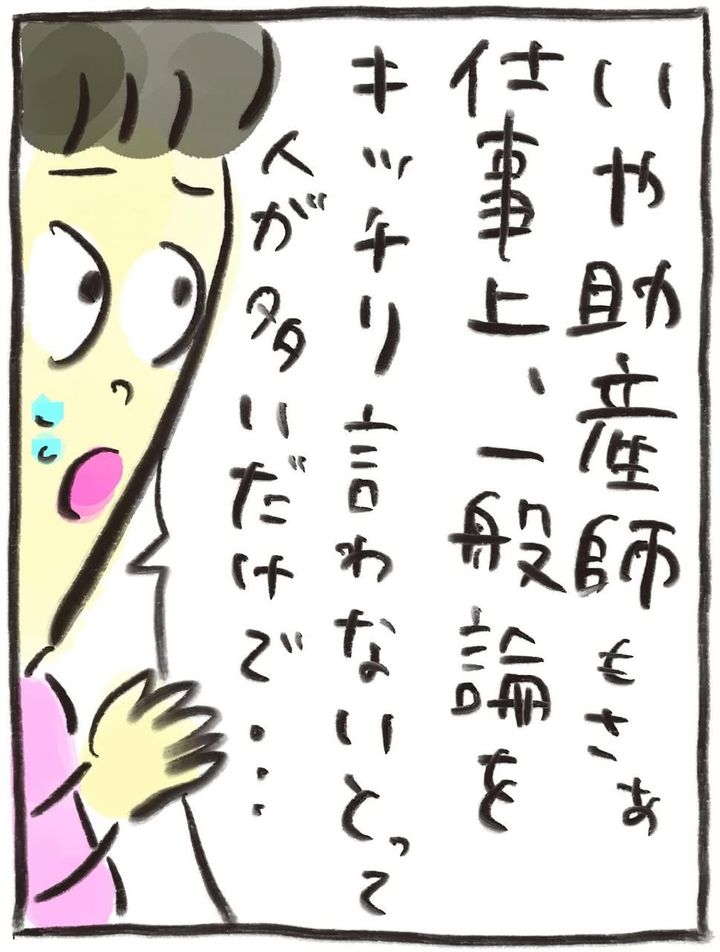 いや助産師もさぁ
仕事上、一般論を
キッチリ言わないとって
人が多いだけで・・・